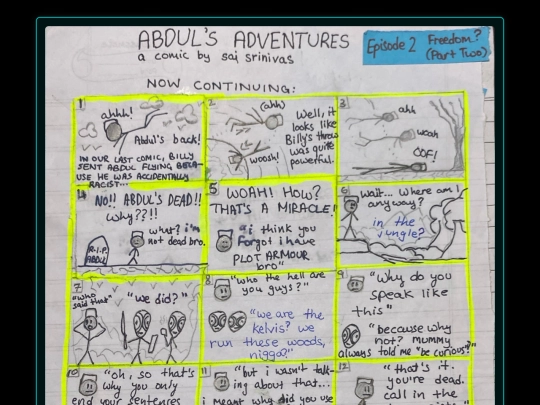 ABDUL'S ADVENTURES
a comic by sai srinivas
Episode 2 Freedom?
(Part Two)
NOW CONTINUING:
1
ahhh!
Abdul's back!
IN OUR LAST COMIC, BILLY
SENT ABDUL FLYING, BECA-
USE HE WAS ACCIDENTALLY
RACIST...
2
(ahh)
woosh!
Well, it
looks like
Billy's throw
was quite
powerful.
3
ahh
woah
OOF!
4
NO!! ABDUL'S DEAD!!
Why??!!
R.I.P.
ABDUL
what? i'm
not dead bro.
5
WOAH! HOW?
THAT'S A MIRACLE!
i think you
forgot i have
PLOT ARMOUR
bro"
6
wait... where am i
anyway?
in the
jungle?
7
"who
said that"
"we did?"
8
"who the hell are
you guys?"
"we are the
kelvis? we
run these woods,
nigga?"
9
"Why do you
speak like
this"
"because why
not? mummy
always told me "be curious?"
10
"oh, so that's
why you only
end your sentences
11
"but i wasn't talk-
ing about that...
i meant why did you use
12
"that's it.
you're dead.
call in the